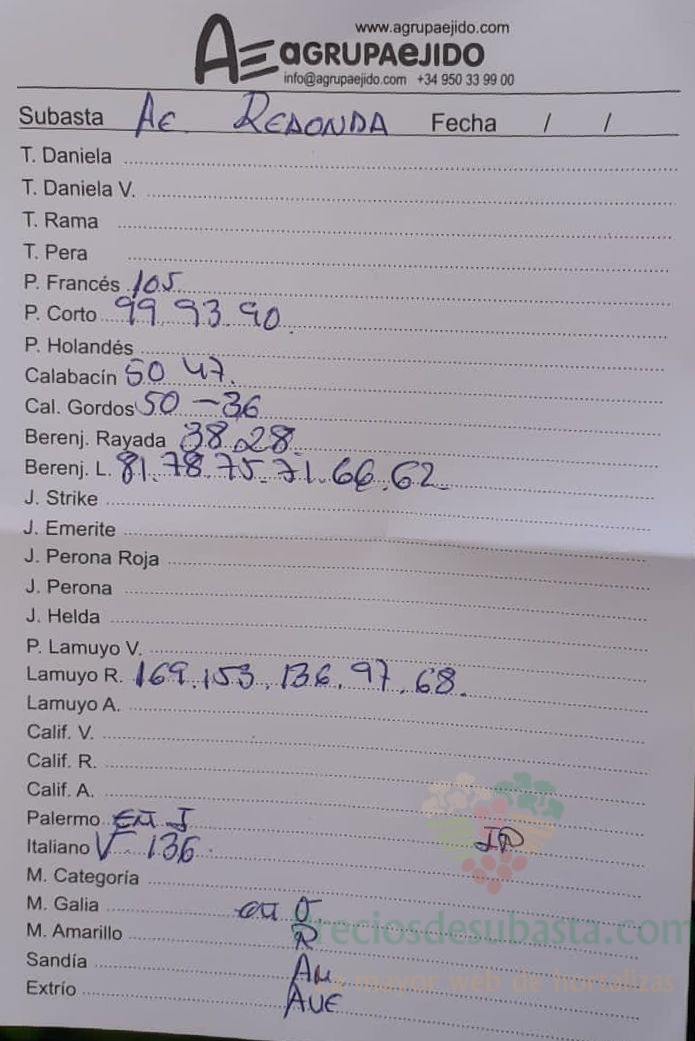 www.agrupaejido.com
AE aGRUPAeJIDO
info@agrupaejido.com +34 950 33 99 00
Subasta AE. REDONDA Fecha / /
T. Daniela
T. Daniela V.
T. Rama
T. Pera
P. Francés 105
P. Corto 99 93 90
P. Holandés
Calabacín 50 47
Cal. Gordos 50 - 36
Berenj. Rayada 38 28
Berenj. L. 81 78 75 71 66 62
J. Strike
J. Emerite
J. Perona Roja
J. Perona
J. Helda
P. Lamuyo V.
Lamuyo R. 169 153 136 97 68
Lamuyo A.
Calif. V.
Calif. R.
Calif. A.
Palermo
Italiano V 136
M. Categoría
M. Galia
M. Amarillo R
Sandía
Extrío
Preciosdesubasta.com
La mayor web de hortalizas